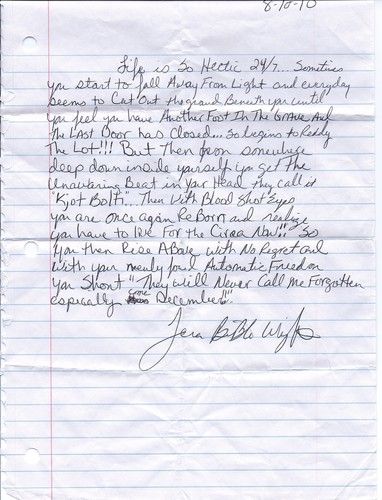 8-10-10
Life is So Hectic 24/7... Sometimes
you start to fall Away From Light and everyday
seems to Cut Out the ground Beneath you until
you feel you have Another Foot In The Grave And
The Last Door has Closed... So begins to
The Lot!!! But Then from somewhere
deep down inside yourself you get the
Unwavering Beat in your Head they call it
"Kjot Bolti"... Then With Blood Shot Eyes
you are once again ReBorn and realize
you have to live For the Circa Now!! So
You then Rise Above with No Regret and
with your newly found Automatic Freedom
you Shout "They will Never Call me Forgotten
espically come December!"